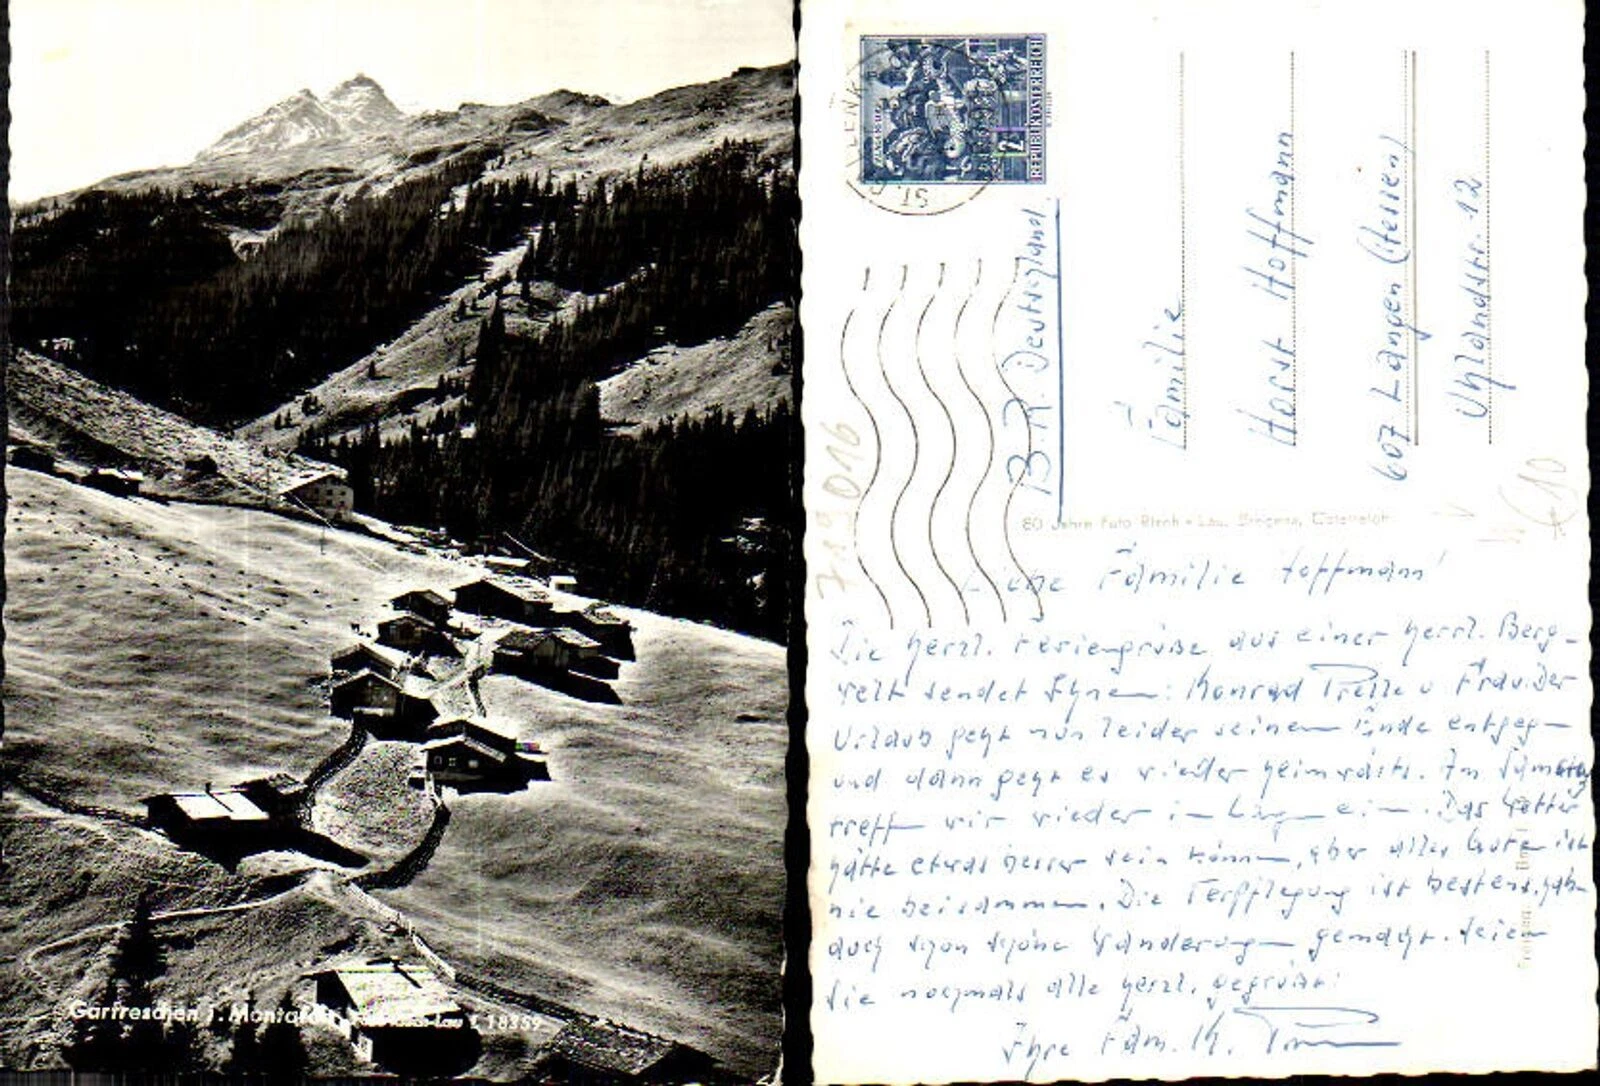 Garfreschen i. Montafon
18359
REPUBLIK ÖSTERREICH
2
ST. GALLENK
B. R. Deutschland
Familie
Horst Hoffmann
607 Langen (Hessen)
Uhlandstr. 12
719016
80 Jahre Foto Risch-Lau, Bregenz, Österreich
Liebe Familie Hoffmann!
Die herzl. Feriengrüße aus einer herrl. Berg-
welt sendet Ihnen: Konrad u Frau. Der
Urlaub geht nun leider seinem Ende entgegen
und dann geht es wieder heimwärts. Am Samstag
treffen wir wieder in Langen ein. Das Wetter
hätte etwas besser sein können, aber alles Gute ist
nie beisammen. Die Verpflegung ist bestens. hab
auch schon schöne Wanderungen gemacht. Seien
Sie nochmals alle herzl. gegrüßt!
Ihre Fam. K.